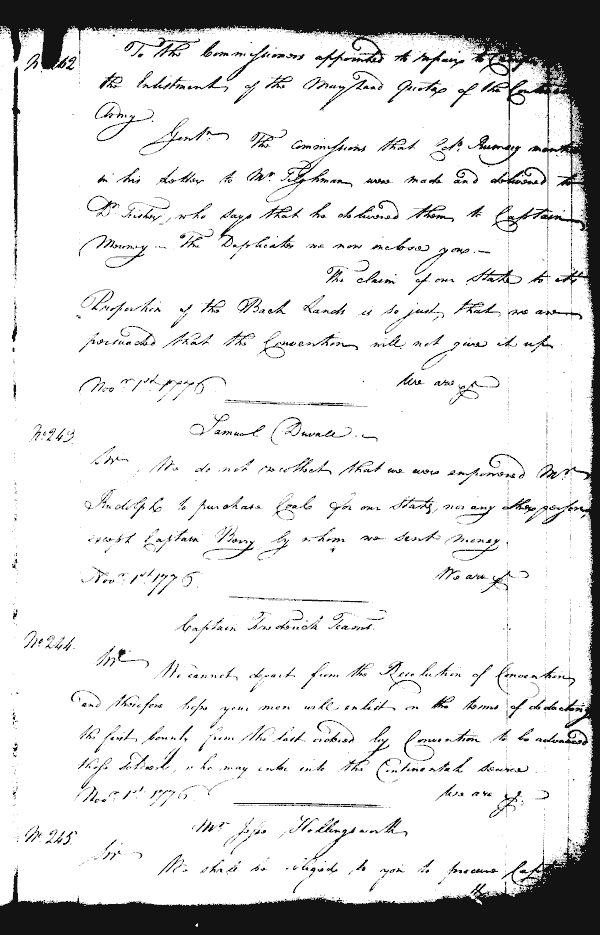 To the Commissioners appointed to repair to
the Enlistment of the Maryland Quotas of the
Army.
Gentn. The commissions that
in his Letter to Mr. Tilghman were made and delivered to
Dr. Fisher, who says that he delivered them to Captain
The Duplicates we now inclose you.—
The claim of our State to it's
Proportion of the Back Lands is so just, that we are
persuaded that the Convention will not give it up
Novr. 1st. 1776 We are &c.
No. 243 Samuel Duvall.—
Sir, We do not recollect that we were empowered Mr.
Rudolph to purchase Coals for our State, nor any other person,
except Captain Berry by whom we sent money.
Novr. 1st. 1776. We are &c.
Captain Frederick Teams.
No. 244.
Sir We cannot depart from the Resolution of Convention,
and therefore hope your men will enlist on the terms of deducting
the first bounty from the last ordered by Convention to be advanced
those Soldiers, who may enter into the Continental service.
Novr. 1st. 1776 We are &c.
No. 245. Mr. Jesse Hollingsworth
Sir We shall be obliged to you to procure Capt.